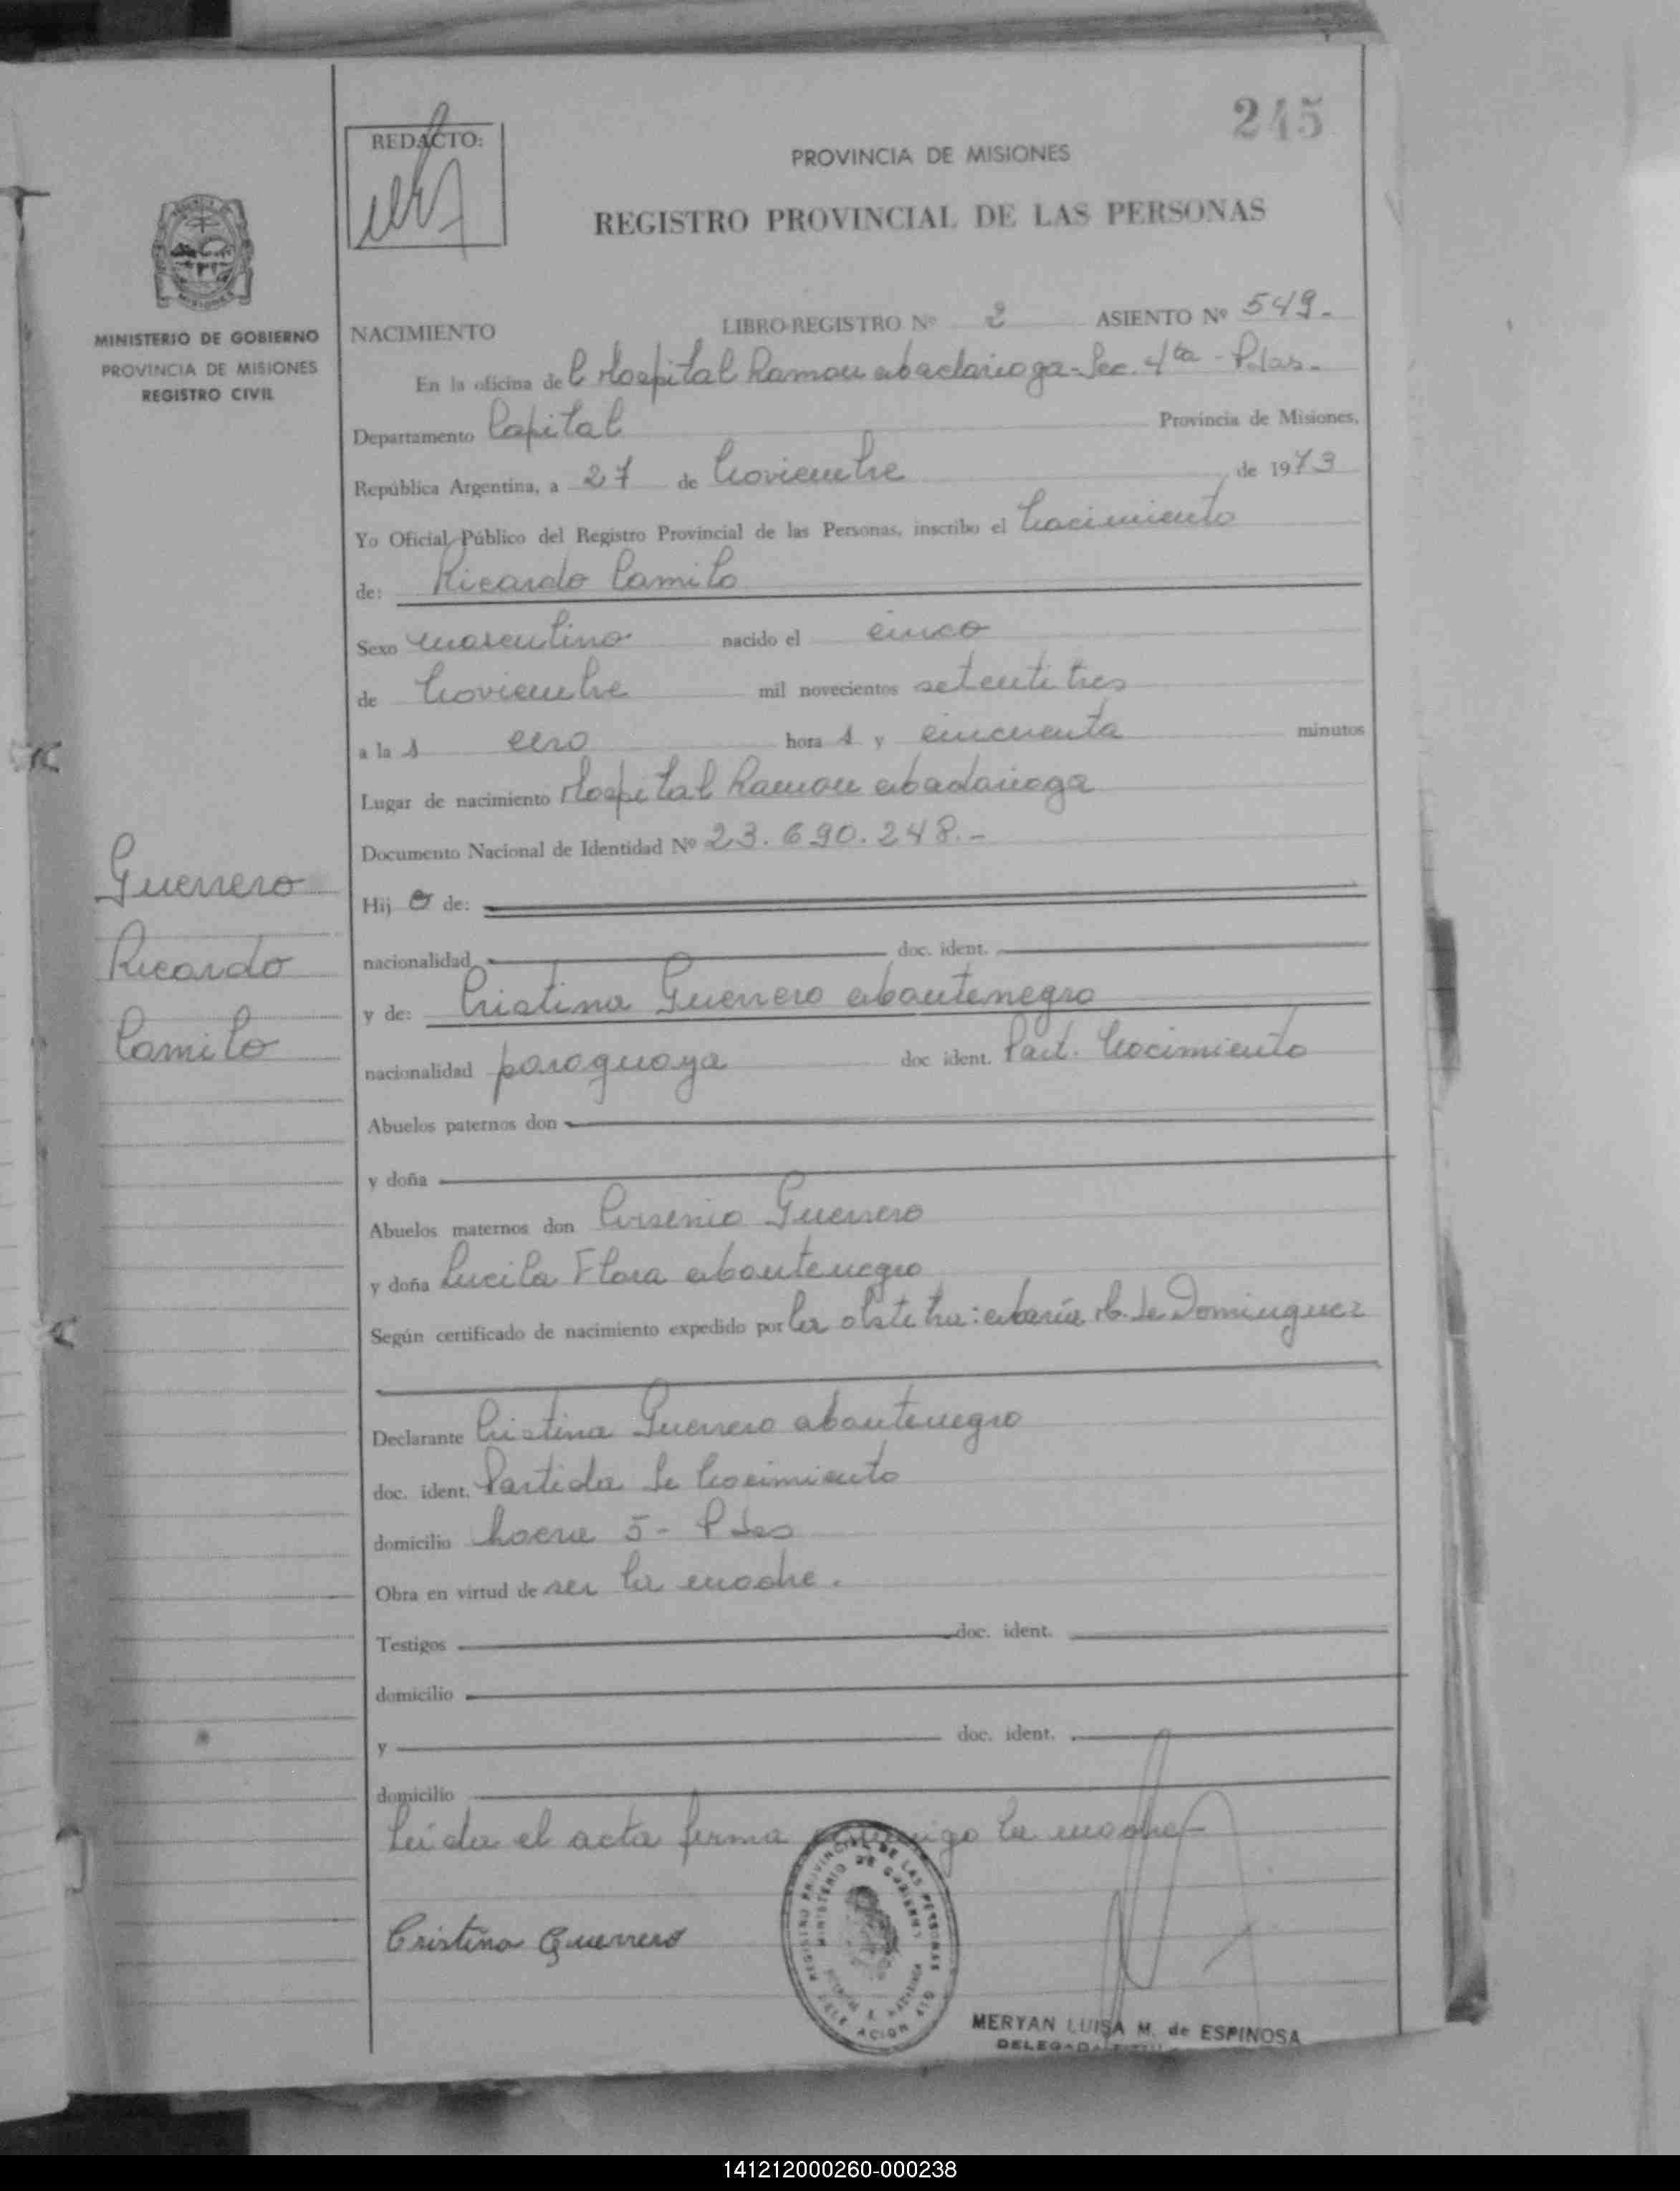 245
REDACTO:
PROVINCIA DE MISIONES
REGISTRO PROVINCIAL DE LAS PERSONAS
MINISTERIO DE GOBIERNO
PROVINCIA DE MISIONES
REGISTRO CIVIL
NACIMIENTO LIBRO-REGISTRO Nº 2 ASIENTO Nº 549.-
En la oficina del Hospital Ramon Madariaga - Sec. 4ta - Pdas.-
Departamento Capital Provincia de Misiones,
República Argentina, a 27 de Noviembre de 1973
Yo Oficial Público del Registro Provincial de las Personas, inscribo el Nacimiento
de: Ricardo Camilo
Sexo masculino nacido el cinco
de Noviembre mil novecientos setentitres
a las cero horas y cincuenta minutos
Lugar de nacimiento Hospital Ramon Madariaga
Documento Nacional de Identidad Nº 23.690.248.-
Guerrero
Ricardo
Camilo
Hijo de:
nacionalidad doc. ident.
y de: Cristina Guerrero Montenegro
nacionalidad paraguaya doc ident. Part. Nacimiento
Abuelos paternos don
y doña
Abuelos maternos don Arsenio Guerrero
y doña Lucila Flora Montenegro
Según certificado de nacimiento expedido por la obstetra: María M. de Dominguez
Declarante Cristina Guerrero Montenegro
doc. ident. Partida de Nacimiento
domicilio 5 - Pdas
Obra en virtud de ser la madre.
Testigos doc. ident.
domicilio
y doc. ident.
domicilio
Leída el acta firma conmigo la madre
Cristina Guerrero
REGISTRO PROVINCIAL DE LAS PERSONAS
MINISTERIO DE GOBIERNO
MERYAN LUISA M. de ESPINOSA
141212000260-000238